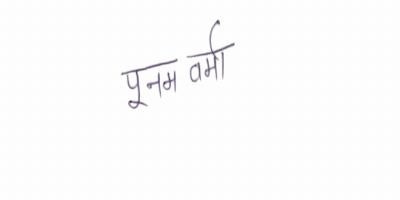 पूनम वर्मा